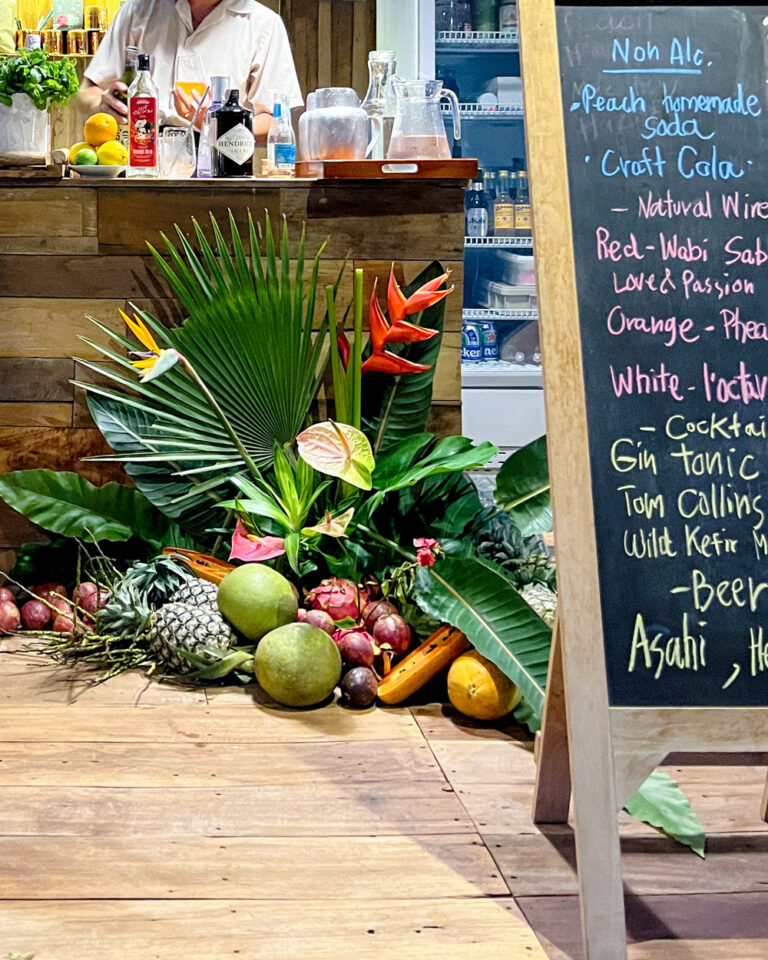 Non Alc.
Peach homemade
soda
· Craft Cola ·
- Natural Wine
Red - Wabi Sab
Love & Passion
Orange - Phea
White - l'octav
- Cocktai
Gin tonic
Tom Collins
Wild Kefir M
- Beer
Asahi , He
HENDRICK'S